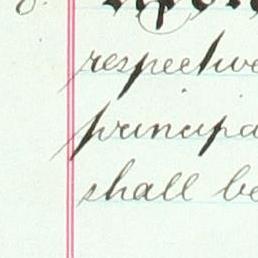 8. Upon
respective
principa
shall be